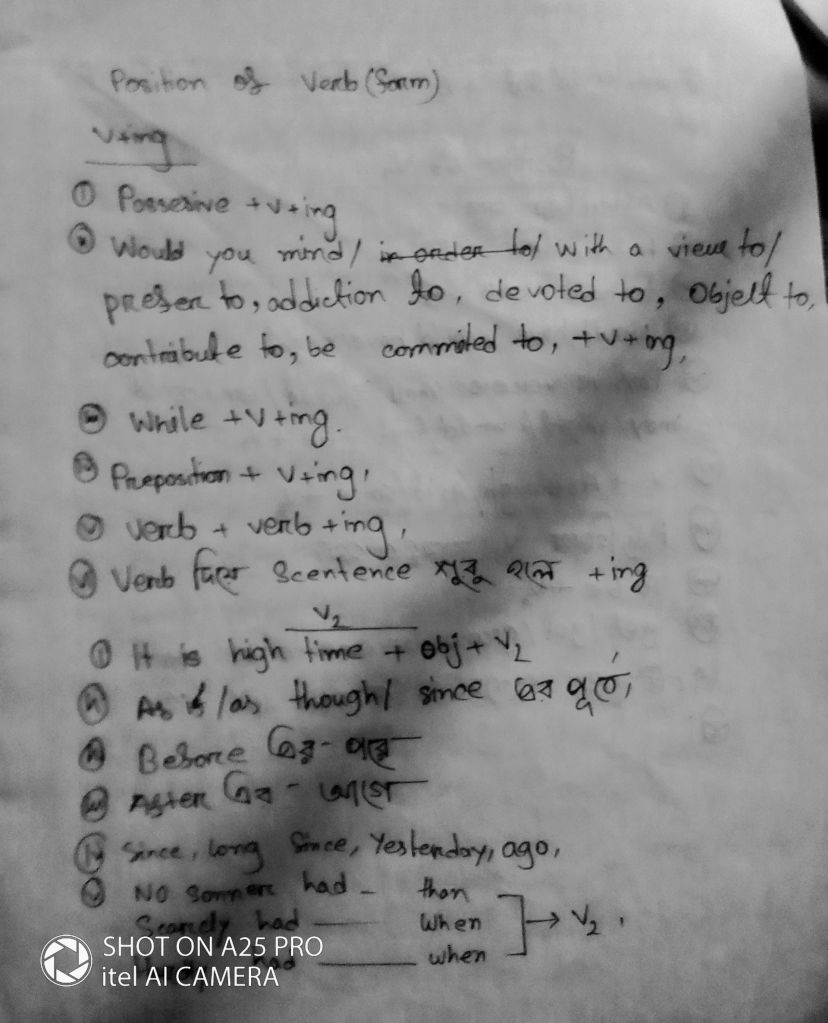 Position of Verb (Form)
V+ing
① Possesive + v + ing
② Would you mind / in order to / with a view to /
prefer to, addiction to, devoted to, Object to,
contribute to, be commited to, + v + ing,
While + v + ing.
Preposition + v + ing,
verb + verb + ing,
Verb দিয়ে Scentence শুরু হলে + ing
V₂
① It is high time + obj + V₂
As if / as though / since এর পূর্বে,
Before এর - পরে
After এর - আগে
Since, long since, Yesterday, ago,
No sonner had - than
Scarcely had — When → V₂.
had — when
SHOT ON A25 PRO
itel AI CAMERA